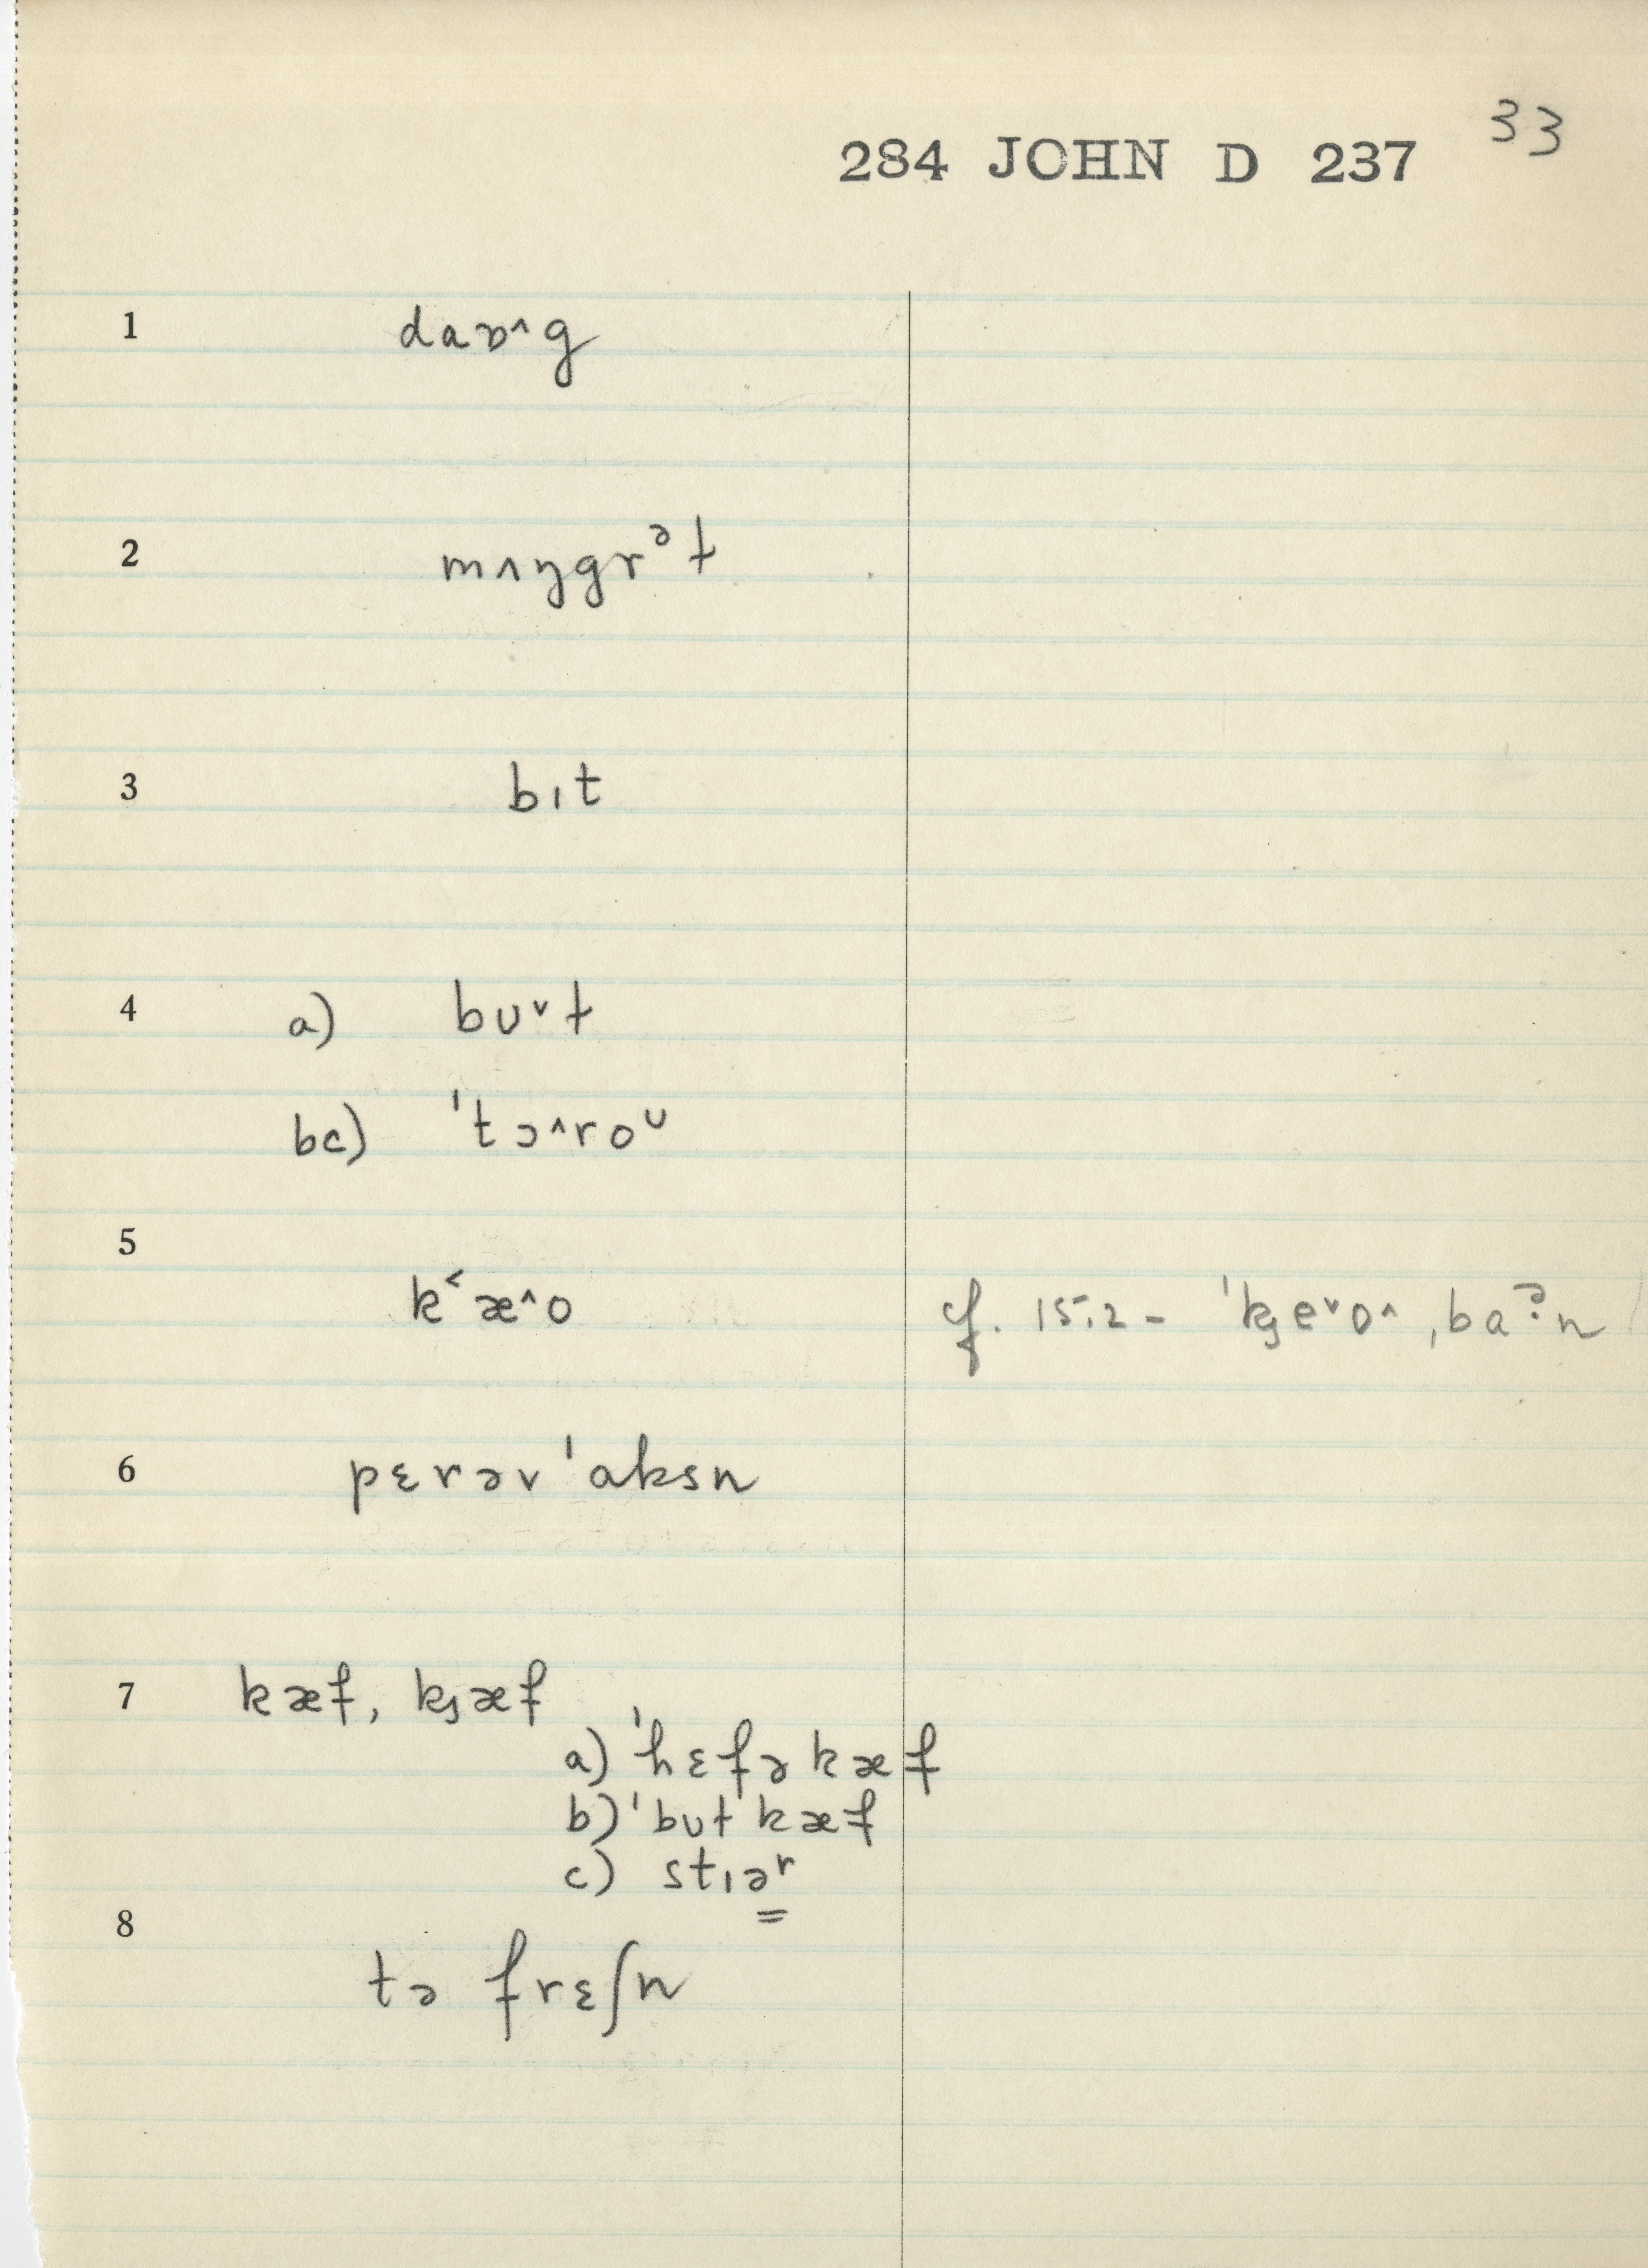 33
284 JOHN D 237
1 daɒ^g
2 mʌŋgrᵊt
3 bɪt
4 a) bʊˇt
bc) ˈtɔ^roᶷ
5 k˂æ^o cf. 15.2 - ˈk̡eˇo^ ˌbaɁ̣n
6 pɛrəvˈaksn
7 kæf, k̡æf
a) ˈhɛfə kæf
b) ˈbʊt kæf
c) stɪəʳ
8 tə frɛʃn